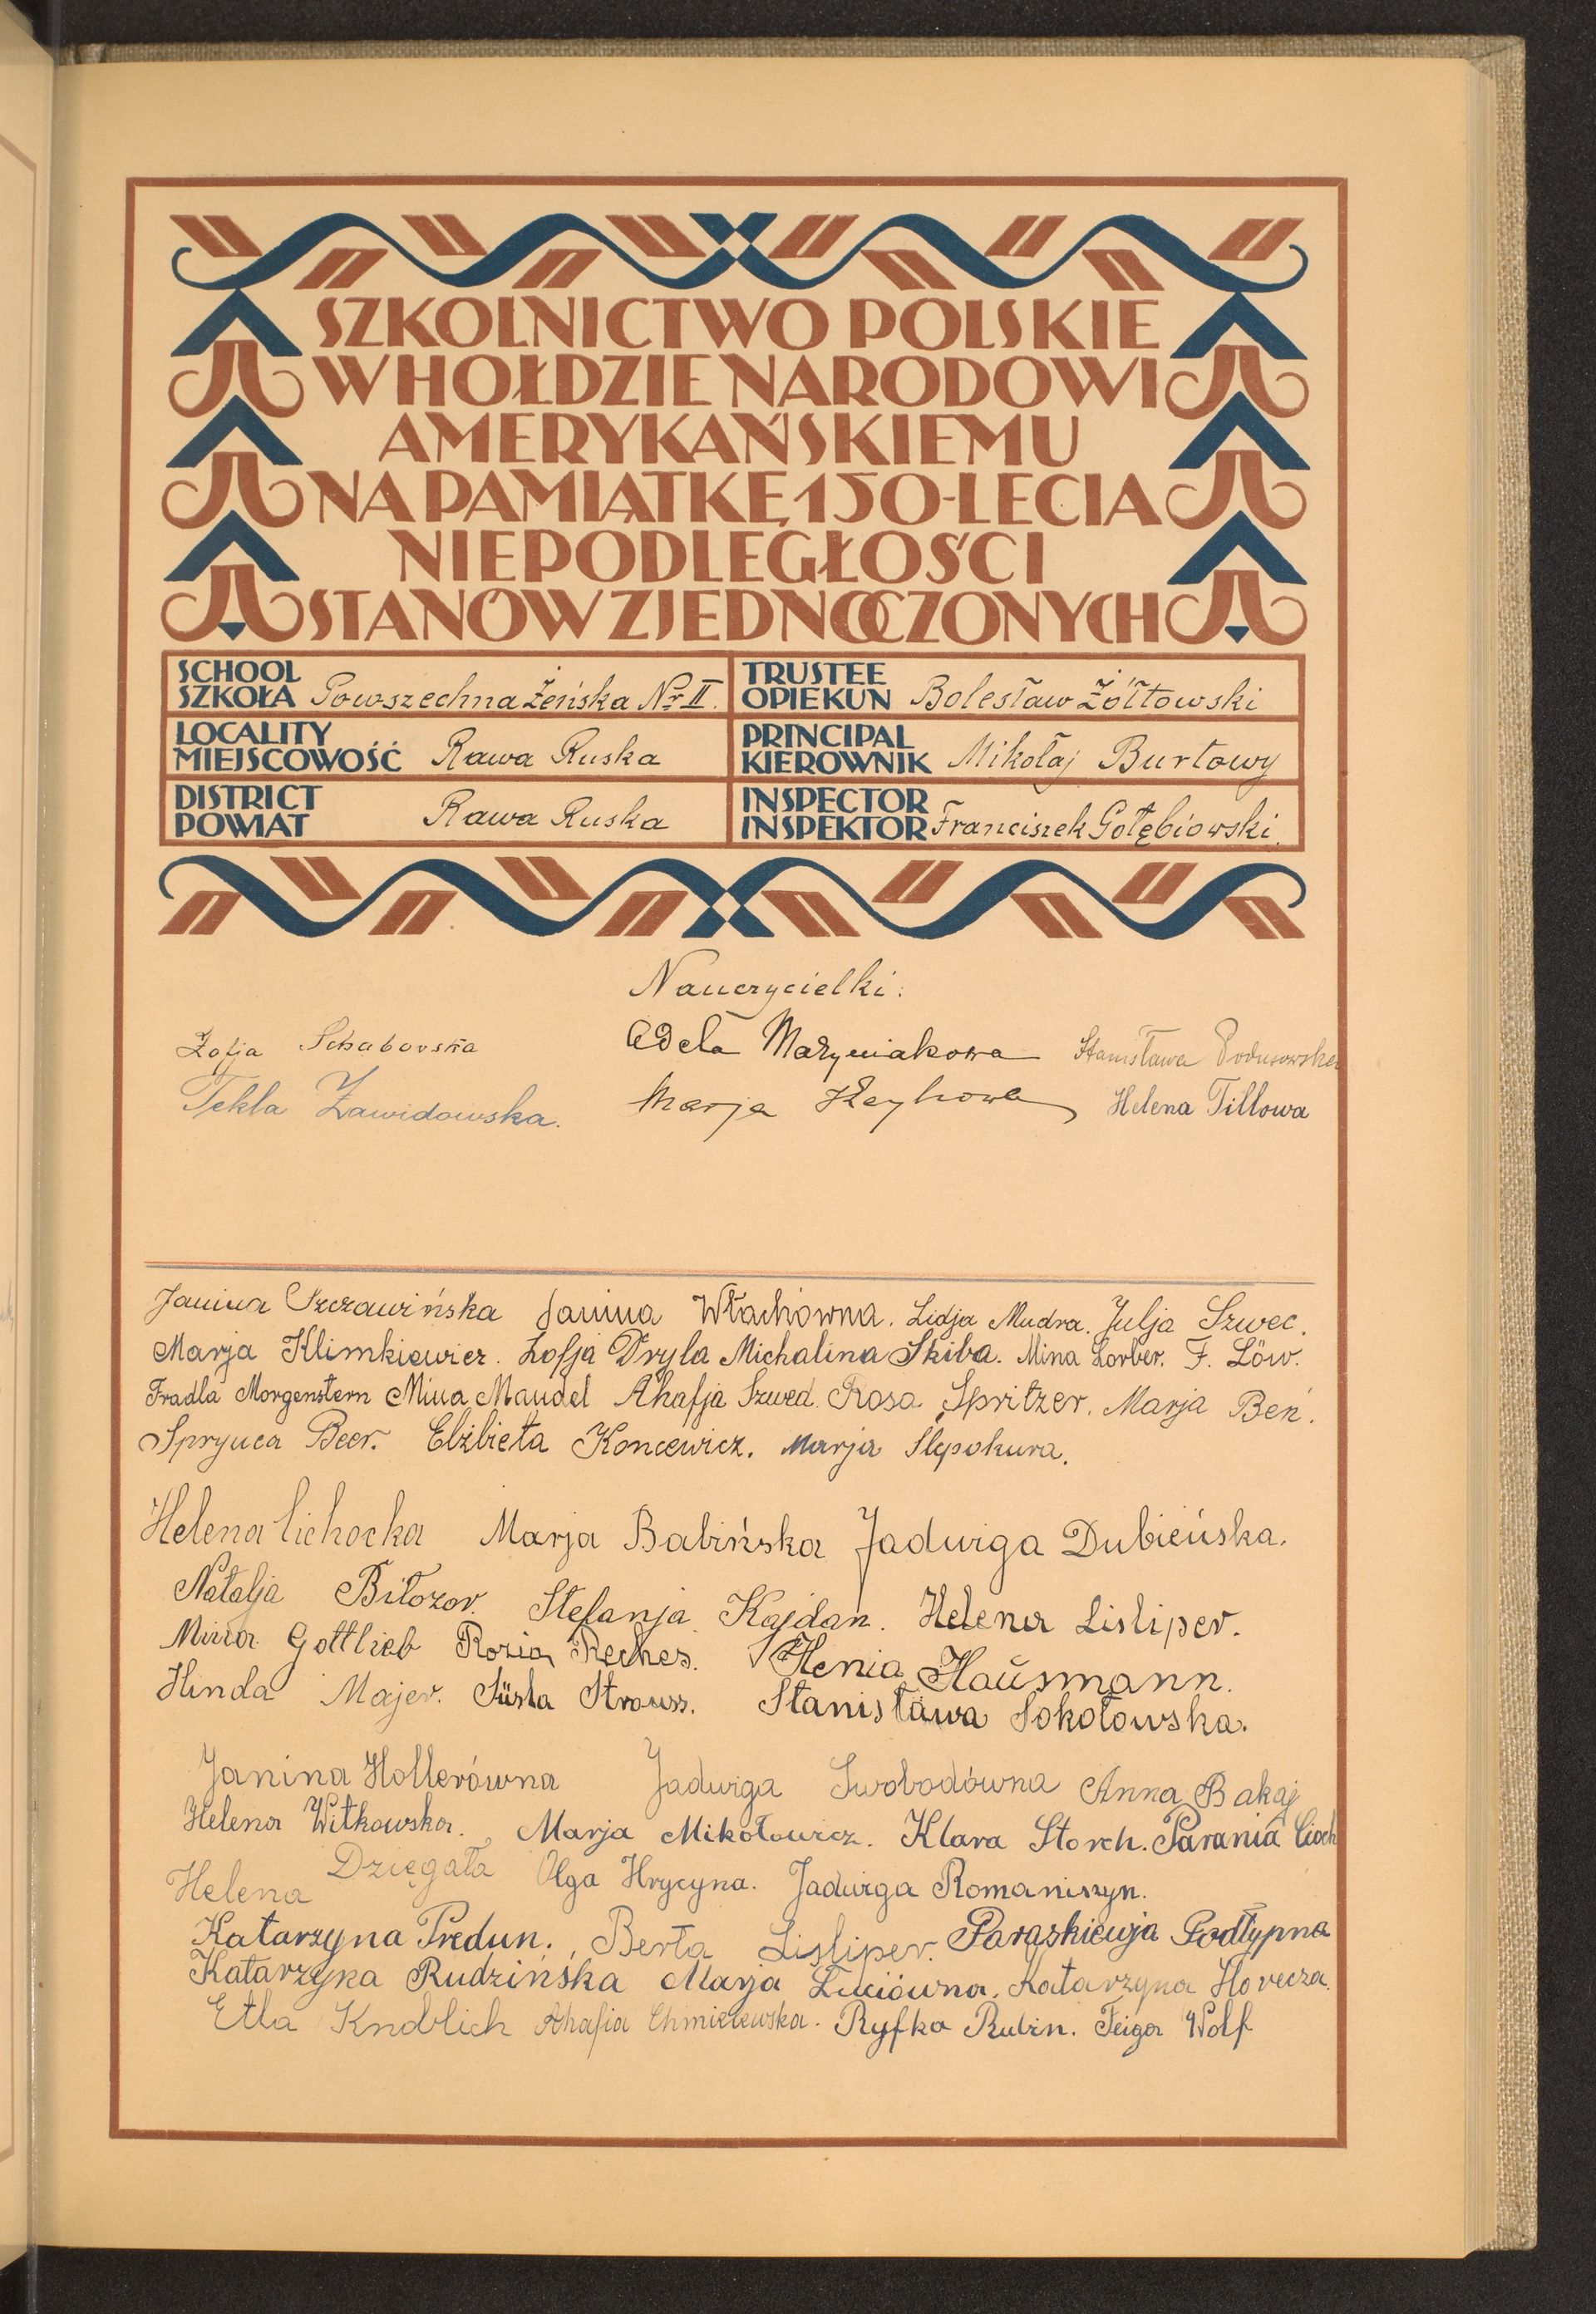 SZKOLNICTWO POLSKIE
W HOŁDZIE NARODOWI
AMERYKAŃSKIEMU
NA PAMIĄTKĘ 150-LECIA
NIEPODLEGŁOŚCI
STANÓW ZJEDNOCZONYCH
SCHOOL
SZKOŁA Powszechna Żeńska Nr II.
TRUSTEE
OPIEKUN Bolesław Żółtowski
LOCALITY
MIEJSCOWOŚĆ Rawa Ruska
PRINCIPAL
KIEROWNIK Mikołaj Burtowy
DISTRICT
POWIAT Rawa Ruska
INSPECTOR
INSPEKTOR Franciszek Gołębiowski.
Nauczycielki:
Zofja Schabowska Adela Stanisława
Tekla Zawidowska. Marja Helena Tillowa
Janina Szczawińska Janina Włachówna. Lidja Mudra. Julja Szwec.
Marja Klimkiewicz. Zofja Dryla Michalina Skiba. Mina Lorber. F. Löw.
Fradla Morgenstern Mina Mandel Ahafja Szwed. Rosa Spritzer. Marja Beń.
Sprynca Beer. Elżbieta Koncewicz. Marja Ślepokura.
Helena Cichocka Marja Babińska Jadwiga Dubieńska.
Natalja Biłozor. Stefanja Kajdan. Helena Lisliper.
Mina Gottlieb Rozia Reches. Henia Hausmann.
Hinda Majer. Süsla Strauss. Stanisława Sokołowska.
Janina Hollerówna Jadwiga Swobodówna Anna Bakaj
Helena Witkowska. Marja Mikołowicz. Klara Storch. Parania Cioch
Helena Dzięgała Olga Hrycyna. Jadwiga Romaniszyn.
Katarzyna Predun. Berta Lisliper. Paraskiewja Podłypna
Katarzyna Rudzińska Marja Luciówna. Katarzyna Horecza.
Etla Knoblich Ahafia Chmielewska. Ryfka Rubin. Feiga Wolf